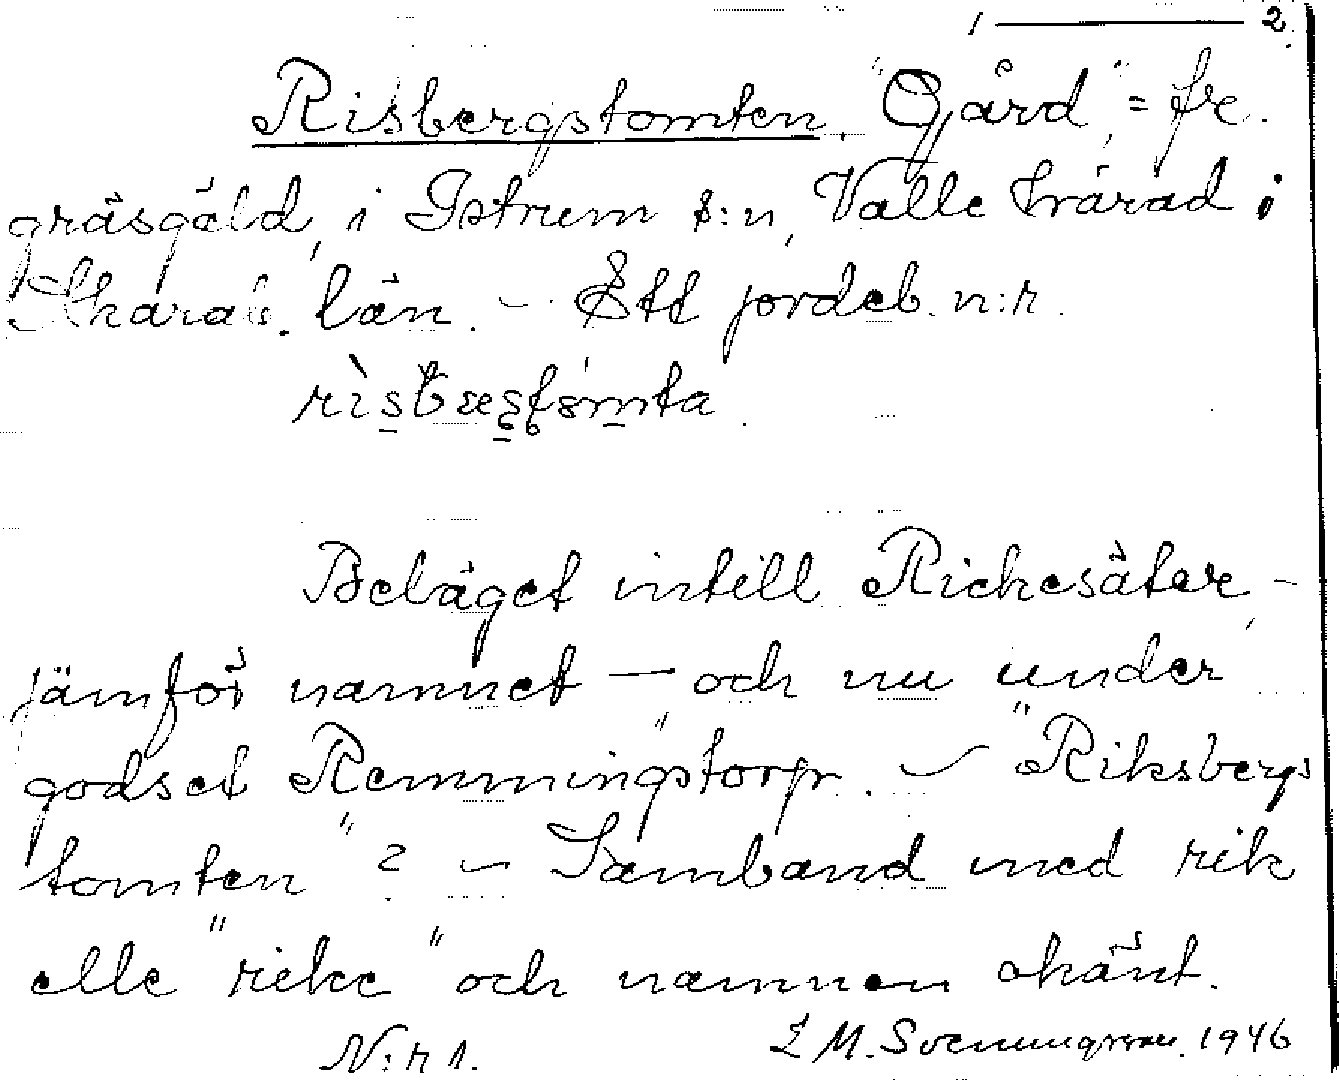 1 — 2.
Risbergstomten. "Gård", = fr.
gräsgäld, i Istrum s:n, Valle härad i
Skarab. län. - Ett jordeb. n:r.
Beläget intill Rickesäter, -
jämför namnet - och nu under
godset Remmingstorp. - "Riksbergs
tomten"? - Samband med rik
elle "rike" och namnen okänt.
N:r 1. Svenungsson. 1946